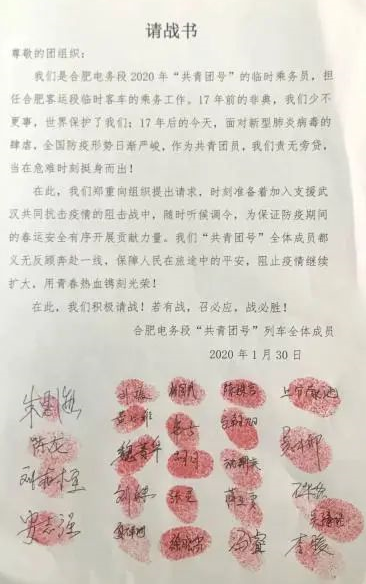 请战书
尊敬的团组织：
我们是合肥电务段2020年“共青团号”的临时乘务员，担
任合肥客运段临时客车的乘务工作。17年前的非典，我们少不
更事，世界保护了我们；17年后的今天，面对新型肺炎病毒的
肆虐，全国防疫形势日渐严峻，作为共青团员，我们责无旁贷，
当在危难时刻挺身而出！
在此，我们郑重向组织提出请求，时刻准备着加入支援武
汉共同抗击疫情的阻击战中，随时听候调令，为保证防疫期间
的春运安全有序开展贡献力量。我们“共青团号”全体成员都
义无反顾奔赴一线，保障人民在旅途中的平安，阻止疫情继续
扩大，用青春热血镌刻光荣！
在此，我们积极请战！若有战，召必应，战必胜！
合肥电务段“共青团号”列车全体成员
2020年1月30日